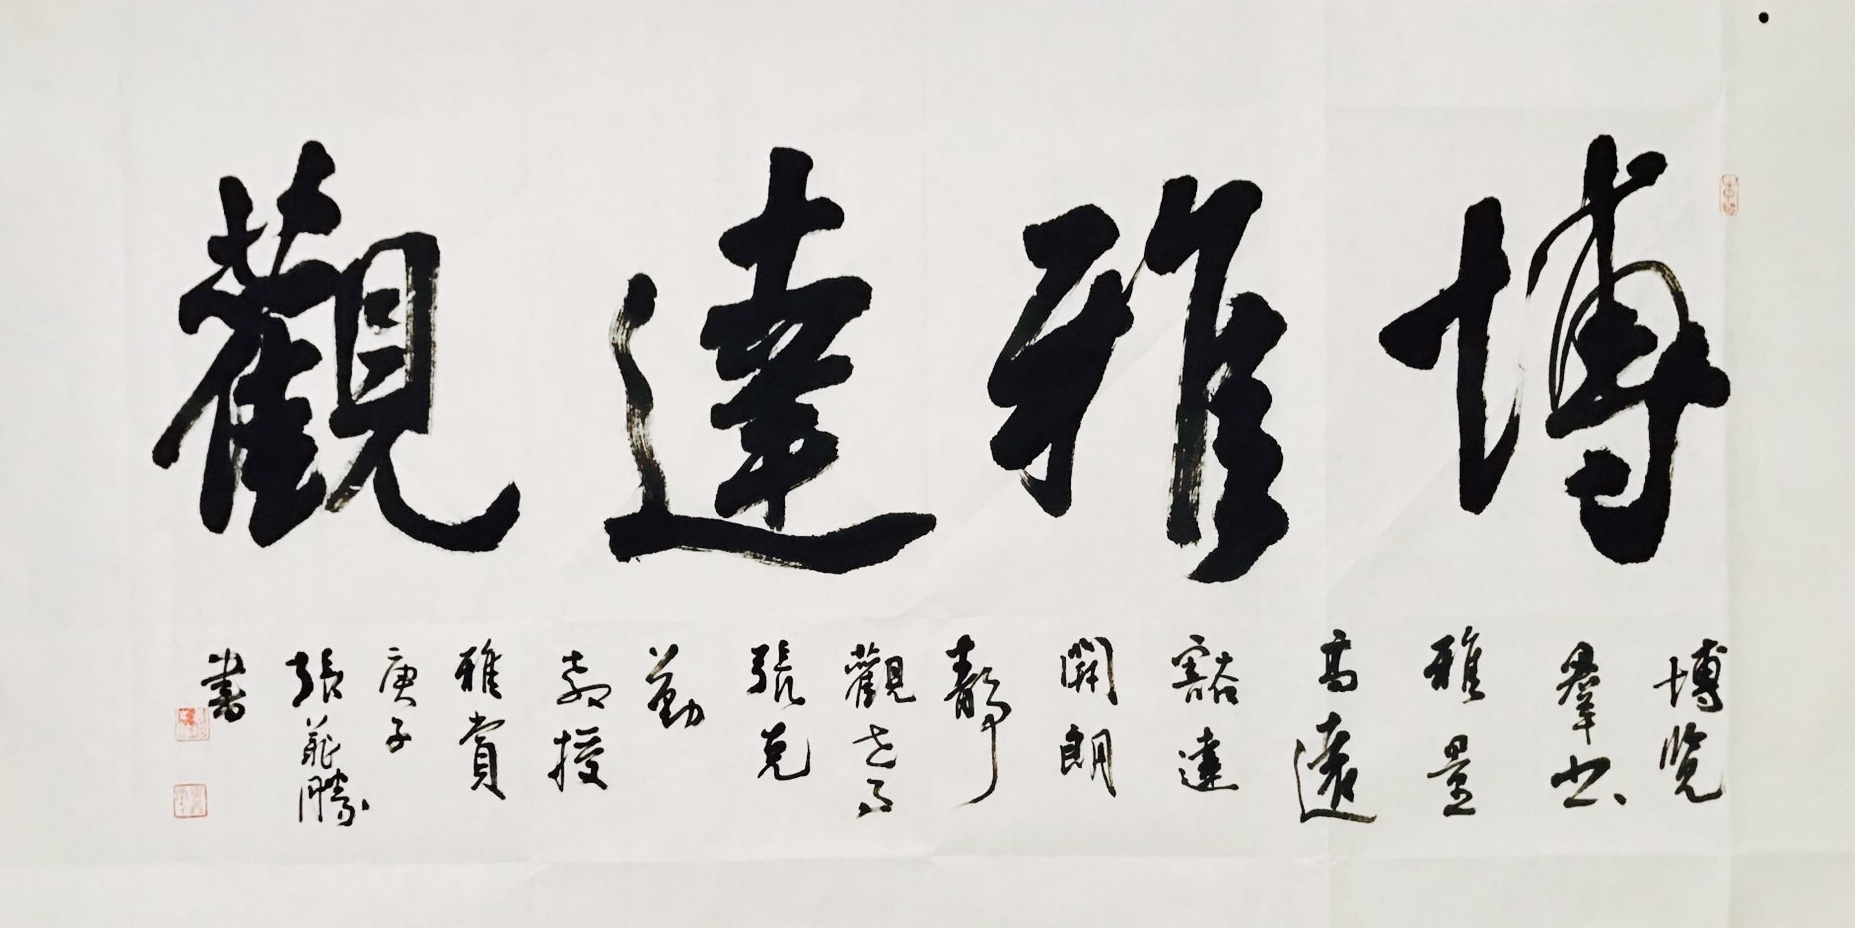 博雅達觀
博覽
羣书
雅量
高遠
豁達
開朗
靜
觀世事
張克
勤
教授
雅賞
庚子
張勝
書